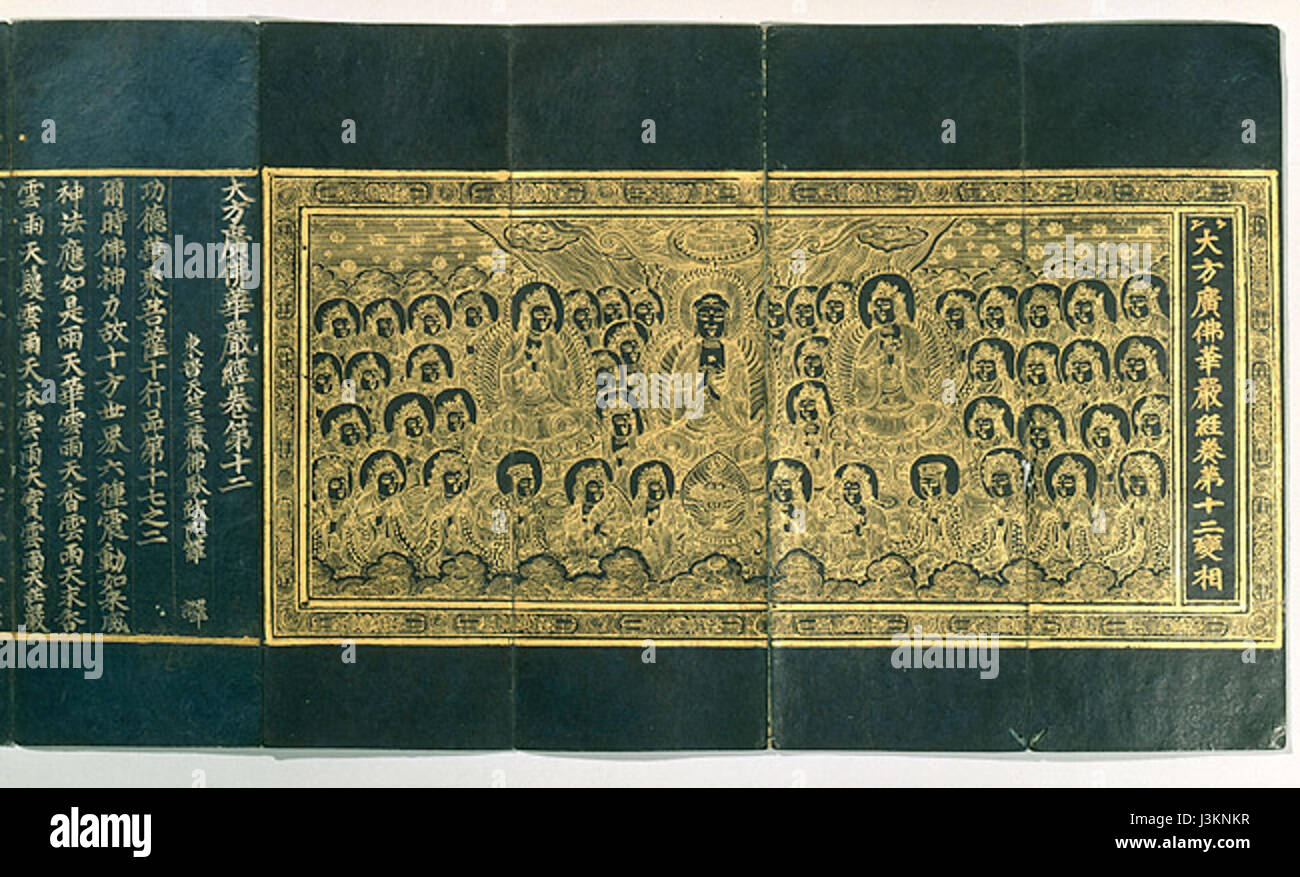 大方廣佛華嚴經卷第十二變相
大方廣佛華嚴經卷第十二
東晉天竺三藏佛馱跋陀羅 譯
功德華聚菩薩十行品第十七之二
爾時佛神力故十方世界六種震動如來威
神法應如是雨天華雲雨天香雲雨天末香
雲雨天鬘雲雨天衣雲雨天寶雲雨天莊嚴
alamy
Image ID: J3KNKR
www.alamy.com